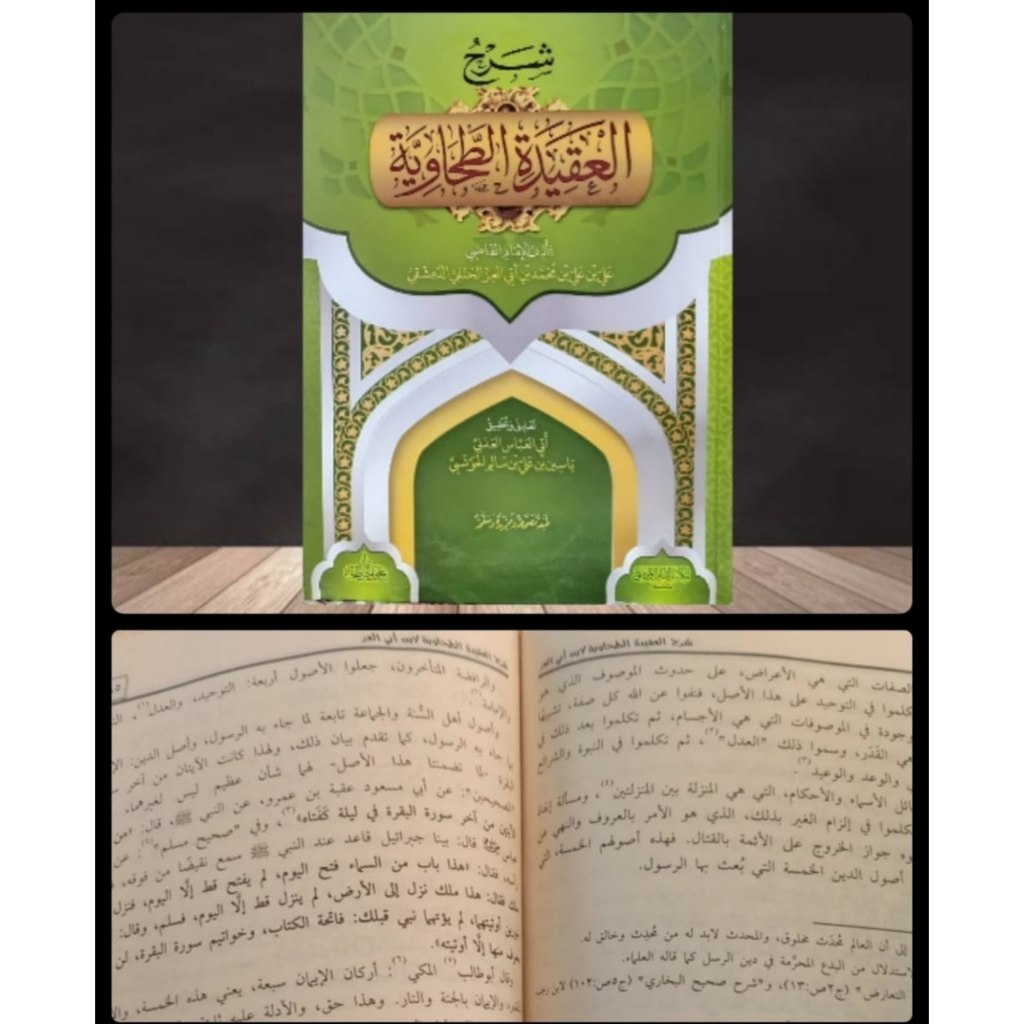 شرح
العقيدة الطحاوية
تأليف الإمام القاضي
علي بن علي بن محمد بن أبي العز الحنفي الدمشقي
تعليق وتحقيق
أبي العباس العدني
ياسين بن علي بن سالم الحوشبي
شرح العقيدة الطحاوية لابن أبي العز
الصفات التي هي الأعراض، على حدوث الموصوف الذي هو
تكلموا في التوحيد على هذا الأصل، فنفوا عن الله كل صفة،
وجودة في الموصوفات التي هي الأجسام، ثم تكلموا بعد ذلك في
هي القَدَر، وسموا ذلك "العدل"(٢)، ثم تكلموا في النبوة والشرائع
والوعد والوعيد(٣).
ئل الأسماء والأحكام، التي هي المنزلة بين المنزلتين(٤)، ومسألة
تكلموا في إلزام الغير بذلك، الذي هو الأمر بالعروف والنهي عن
وه جواز الخروج على الأئمة بالقتال. فهذه أصولهم الخمسة، التي
أصول الدين الخمسة التي بُعث بها الرسول.
إلى أن العالم مُحدَث مخلوق، والمحدث لابد له من مُحدِث وخالق له.
استدلال من البدع المحرَّمة في دين الرسل كما قاله العلماء.
التعارض" (ج٢ص:١٣)، و"شرح صحيح البخاري" (ج٥ص:١٠٢) لابن رجب
شرح العقيدة الطحاوية لابن أبي العز
والرافضة المتأخرون، جعلوا الأصول أربعة: التوحيد، والعدل(١)،
والإمامة(٢).
وأصول أهل السُّنة والجماعة تابعة لما جاء به الرسول، وأصل الدين:
جاء به الرسول، كما تقدم بيان ذلك، ولهذا كانت الآيتان من آخر
البقرة -لما تضمنتا هذا الأصل- لهما شأن عظيم ليس لغيرهما،
"الصحيحين": عن أبي مسعود عقبة بن عمرو، عن النبي ﷺ، قال: «من
الآيتين من آخر سورة البقرة في ليلة كَفَتاه»(٣)، وفي "صحيح مسلم"(٤): عن
عباس قال: بينا جبرائيل قاعد عند النبي ﷺ سمع نقيضًا من فوقه،
فقال: «هذا باب من السماء فتح اليوم، لم يفتح قط إلَّا اليوم، فنزل
ملك فقال: هذا ملك نزل إلى الأرض، لم ينزل قط إلَّا اليوم، فسلم، وقال:
أوتيتهما، لم يؤتهما نبي قبلك: فاتحة الكتاب، وخواتيم سورة البقرة، لن
منها إلَّا أوتيته».
وقال أبوطالب(٥) المكي(٦): أركان الإيمان سبعة، يعني هذه الخمسة،
والإيمان بالجنة والنار. وهذا حق، والأدلة عليه